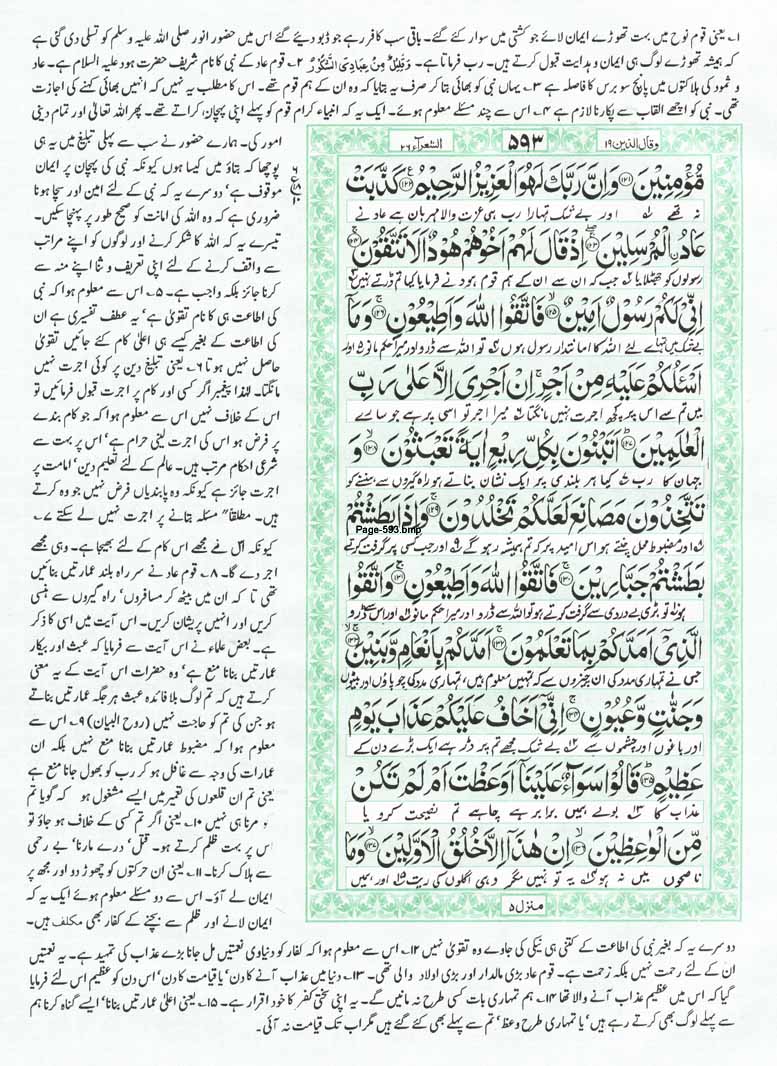 ۱؎ یعنی قوم نوح میں بہت تھوڑے ایمان لائے جو کشتی میں سوار کئے گئے۔ باقی سب کافر رہے جو ڈبو دیئے گئے اس میں حضور انور صلی اللہ علیہ وسلم کو تسلی دی گئی ہے
کہ ہمیشہ تھوڑے لوگ ہی ایمان و ہدایت قبول کرتے ہیں۔ رب فرماتا ہے۔ وَقَلِیْلٌ مِّنْ عِبَادِیَ الشَّکُوْرُ ۲؎ قوم عاد کے نبی کا نام شریف حضرت ہود علیہ السلام ہے۔ عاد
و ثمود کی ہلاکتوں میں پانچ سو برس کا فاصلہ ہے ۳؎ یہاں نبی کو بھائی بتا کر صرف یہ بتایا کہ وہ ان کے ہم قوم تھے۔ اس کا مطلب یہ نہیں کہ انہیں بھائی کہنے کی اجازت
تھی۔ نبی کو اچھے القاب سے پکارنا لازم ہے ۴؎ اس سے چند مسئلے معلوم ہوئے۔ ایک یہ کہ انبیاء کرام قوم کو پہلے اپنی پہچان کراتے تھے۔ پھر اللہ تعالیٰ اور تمام دینی
وقال الذین ۱۹
۵۹۳
الشعرآء ۲۶
مُّؤْمِنِیْنَ ﴿۱۲۱﴾ وَاِنَّ رَبَّکَ لَھُوَ الْعَزِیْزُ الرَّحِیْمُ ﴿۱۲۲﴾ کَذَّبَتْ
نہ تھے اور بے شک تمہارا رب ہی عزت والا مہربان ہے عاد نے
عَادُ ۨالْمُرْسَلِیْنَ ﴿۱۲۳﴾ اِذْ قَالَ لَھُمْ اَخُوْھُمْ ھُوْدٌ اَلَا تَتَّقُوْنَ ﴿۱۲۴﴾
رسولوں کو جھٹلایا جب کہ ان سے ان کے ہم قوم ہود نے فرمایا کیا تم ڈرتے نہیں
اِنِّیْ لَکُمْ رَسُوْلٌ اَمِیْنٌ ﴿۱۲۵﴾ فَاتَّقُوا اللّٰہَ وَاَطِیْعُوْنِ ﴿۱۲۶﴾ وَمَآ
بے شک میں تمہارے لئے اللہ کا امانتدار رسول ہوں تو اللہ سے ڈرو اور میرا حکم مانو اور
اَسْئَلُکُمْ عَلَیْہِ مِنْ اَجْرٍ اِنْ اَجْرِیَ اِلَّا عَلٰی رَبِّ
میں تم سے اس پر کچھ اجرت نہیں مانگتا میرا اجر تو اسی پر ہے جو سارے
الْعٰلَمِیْنَ ﴿۱۲۷﴾ اَتَبْنُوْنَ بِکُلِّ رِیْعٍ اٰیَۃً تَعْبَثُوْنَ ﴿۱۲۸﴾ وَ
جہان کا رب کیا ہر بلندی پر ایک نشان بناتے ہو راہ گیروں سے ہنسنے کو
تَتَّخِذُوْنَ مَصَانِعَ لَعَلَّکُمْ تَخْلُدُوْنَ ﴿۱۲۹﴾ وَاِذَا بَطَشْتُمْ
Page-593.bmp
اور مضبوط محل چنتے ہو اس امید پر کہ تم ہمیشہ رہو گے اور جب کسی پر گرفت کرتے
بَطَشْتُمْ جَبَّارِیْنَ ﴿۱۳۰﴾ فَاتَّقُوا اللّٰہَ وَاَطِیْعُوْنِ ﴿۱۳۱﴾ وَاتَّقُوا
ہو تو بڑی بے دردی سے گرفت کرتے ہو تو اللہ سے ڈرو اور میرا حکم مانو اور اس سے ڈرو
الَّذِیْٓ اَمَدَّکُمْ بِمَا تَعْلَمُوْنَ ﴿۱۳۲﴾ اَمَدَّکُمْ بِاَنْعَامٍ وَّبَنِیْنَ ﴿۱۳۳﴾
جس نے تمہاری مدد کی ان چیزوں سے کہ تمہیں معلوم ہیں، تمہاری مدد کی چوپاؤں اور بیٹوں
وَجَنّٰتٍ وَّعُیُوْنٍ ﴿۱۳۴﴾ اِنِّیْٓ اَخَافُ عَلَیْکُمْ عَذَابَ یَوْمٍ
اور باغوں اور چشموں سے بے شک مجھے تم پر ڈر ہے ایک بڑے دن کے
عَظِیْمٍ ﴿۱۳۵﴾ قَالُوْا سَوَآءٌ عَلَیْنَآ اَوَعَظْتَ اَمْ لَمْ تَکُنْ
عذاب کا بولے ہمیں برابر ہے چاہے تم نصیحت کرو یا
مِّنَ الْوٰعِظِیْنَ ﴿۱۳۶﴾ اِنْ ھٰذَآ اِلَّا خُلُقُ الْاَوَّلِیْنَ ﴿۱۳۷﴾ وَمَا
ناصحوں میں نہ ہو یہ تو نہیں مگر وہی اگلوں کی ریت اور ہمیں
منزل ۵
امور کی۔ ہمارے حضور نے سب سے پہلی تبلیغ میں یہ ہی
پوچھا کہ بتاؤ میں کیسا ہوں کیونکہ نبی کی پہچان پر ایمان
موقوف ہے' دوسرے یہ کہ نبی کے لئے امین اور سچا ہونا
ضروری ہے کہ وہ اللہ کی امانت کو صحیح طور پر پہنچا سکیں۔
تیسرے یہ کہ اللہ کا شکر کرنے اور لوگوں کو اپنے مراتب
سے واقف کرنے کے لئے اپنی تعریف و ثنا اپنے منہ سے
کرنا جائز بلکہ واجب ہے۔ ۵؎ اس سے معلوم ہوا کہ نبی
کی اطاعت ہی کا نام تقویٰ ہے' یہ عطف تفسیری ہے ان
کی اطاعت کے بغیر کیسے ہی اعلیٰ کام کئے جائیں تقویٰ
حاصل نہیں ہوتا ۶؎ یعنی تبلیغ دین پر کوئی اجرت نہیں
مانگتا۔ لہٰذا پیغمبر اگر کسی اور کام پر اجرت قبول فرمائیں تو
اس کے خلاف نہیں اس سے معلوم ہوا کہ جو کام بندے
پر فرض ہو اس کی اجرت لینی حرام ہے' اس پر بہت سے
شرعی احکام مرتب ہیں۔ عالم کے لئے تعلیم دین' امامت پر
اجرت جائز ہے کیونکہ وہ پابندیاں فرض نہیں جو وہ کرتے
ہیں۔ مطلقاً" مسئلہ بتانے پر اجرت نہیں لے سکتے ۷؎
کیونکہ اس نے مجھے اس کام کے لئے بھیجا ہے۔ وہی مجھے
اجر دے گا۔ ۸؎ قوم عاد نے سر راہ بلند عمارتیں بنائیں
تھی تا کہ ان میں بیٹھ کر مسافروں' راہ گیروں سے ہنسی
کریں اور انہیں پریشان کریں۔ اس آیت میں اسی کا ذکر
ہے۔ بعض علماء نے اس آیت سے فرمایا کہ عبث اور بیکار
عمارتیں بنانا منع ہے' وہ حضرات اس آیت کے یہ معنی
کرتے ہیں کہ تم لوگ بلا فائدہ عبث ہر جگہ عمارتیں بناتے
ہو جن کی تم کو حاجت نہیں (روح البیان) ۹؎ اس سے
معلوم ہوا کہ مضبوط عمارتیں بنانا منع نہیں بلکہ ان
عمارات کی وجہ سے غافل ہو کر رب کو بھول جانا منع ہے
یعنی تم ان قلعوں کی تعمیر میں ایسے مشغول ہو کہ گویا تم
کو مرنا ہی نہیں ۱۰؎ یعنی اگر تم کسی کے خلاف ہو جاؤ تو
اس پر بہت ظلم کرتے ہو۔ قتل' درے مارنا' بے رحمی
سے ہلاک کرنا۔ ۱۱؎ یعنی ان حرکتوں کو چھوڑ دو اور مجھ پر
ایمان لے آؤ۔ اس سے دو مسئلے معلوم ہوئے ایک یہ کہ
ایمان لانے اور ظلم سے بچنے کے کفار بھی مکلف ہیں۔
دوسرے یہ کہ بغیر نبی کی اطاعت کے کتنی ہی نیکی کی جاوے وہ تقویٰ نہیں ۱۲؎ اس سے معلوم ہوا کہ کفار کو دنیاوی نعمتیں مل جانا بڑے عذاب کی تمہید ہے۔ یہ نعمتیں
ان کے لئے رحمت نہیں بلکہ زحمت ہے۔ قوم عاد بڑی مالدار اور بڑی اولاد والی تھی۔ ۱۳؎ دنیا میں عذاب آنے کا دن' یا قیامت کا دن' اس دن کو عظیم اس لئے فرمایا
گیا کہ اس میں عظیم عذاب آنے والا تھا ۱۴؎ ہم تمہاری بات کسی طرح نہ مانیں گے۔ یہ اپنی سختی کفر کا خود اقرار ہے۔ ۱۵؎ یعنی اعلیٰ عمارتیں بنانا' ایسے گناہ کرنا ہم
سے پہلے لوگ بھی کرتے رہے ہیں' یا تمہاری طرح وعظ' تم سے پہلے بھی کئے گئے ہیں مگر اب تک قیامت نہ آئی۔